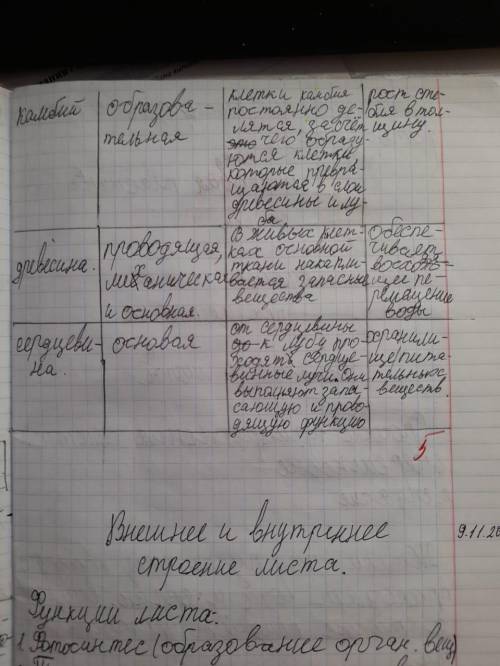 камбий
образова-
тельная
клетки камбия
постоянно де-
лятся, за счёт
чего образу-
ются клетки,
которые превра-
щаются в слои
древесины и лу-
ба
рост сте-
бля в тол-
щину.
древесина.
проводящая,
механическая
и основная.
В живых клет-
ках основной
ткани накапли-
вается запасные
вещества
обеспе-
чивает
восходя-
щее пе-
ремещение
воды
сердцеви-
на.
основая
от сердцевины
до к лубу про-
ходят сердце-
винные лучи. Они
выполняют запа-
сающую и прово-
дящую функцию
хранили-
ще пита-
тельных
веществ.
5
Внешнее и внутреннее
9.11.20
строение листа.
Функции листа:
1. Фотосинтес (образование орган. вещ)